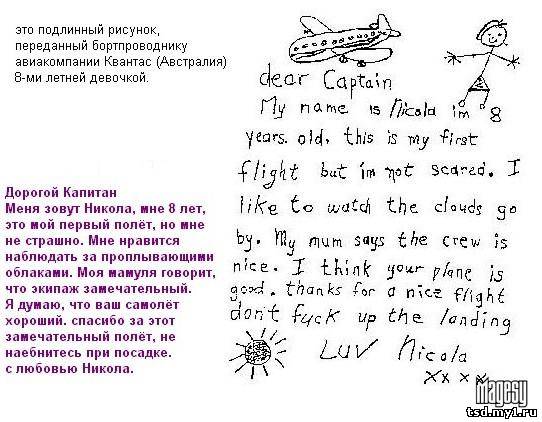 это подлинный рисунок,
переданный бортпроводнику
авиакомпании Квантас (Австралия)
8-ми летней девочкой.
dear Captain
My name is Nicola im 8
years old, this is my first
flight but im not scared. I
like to watch the clouds go
by. My mum says the crew is
nice. I think your plane is
good. thanks for a nice flight
don't fuck up the landing
LUV Nicola
x x x x
Дорогой Капитан
Меня зовут Никола, мне 8 лет,
это мой первый полёт, но мне
не страшно. Мне нравится
наблюдать за проплывающими
облаками. Моя мамуля говорит,
что экипаж замечательный.
Я думаю, что ваш самолёт
хороший. спасибо за этот
замечательный полёт, не
наебнитесь при посадке.
с любовью Никола.
magesy
tsd.my1.ru